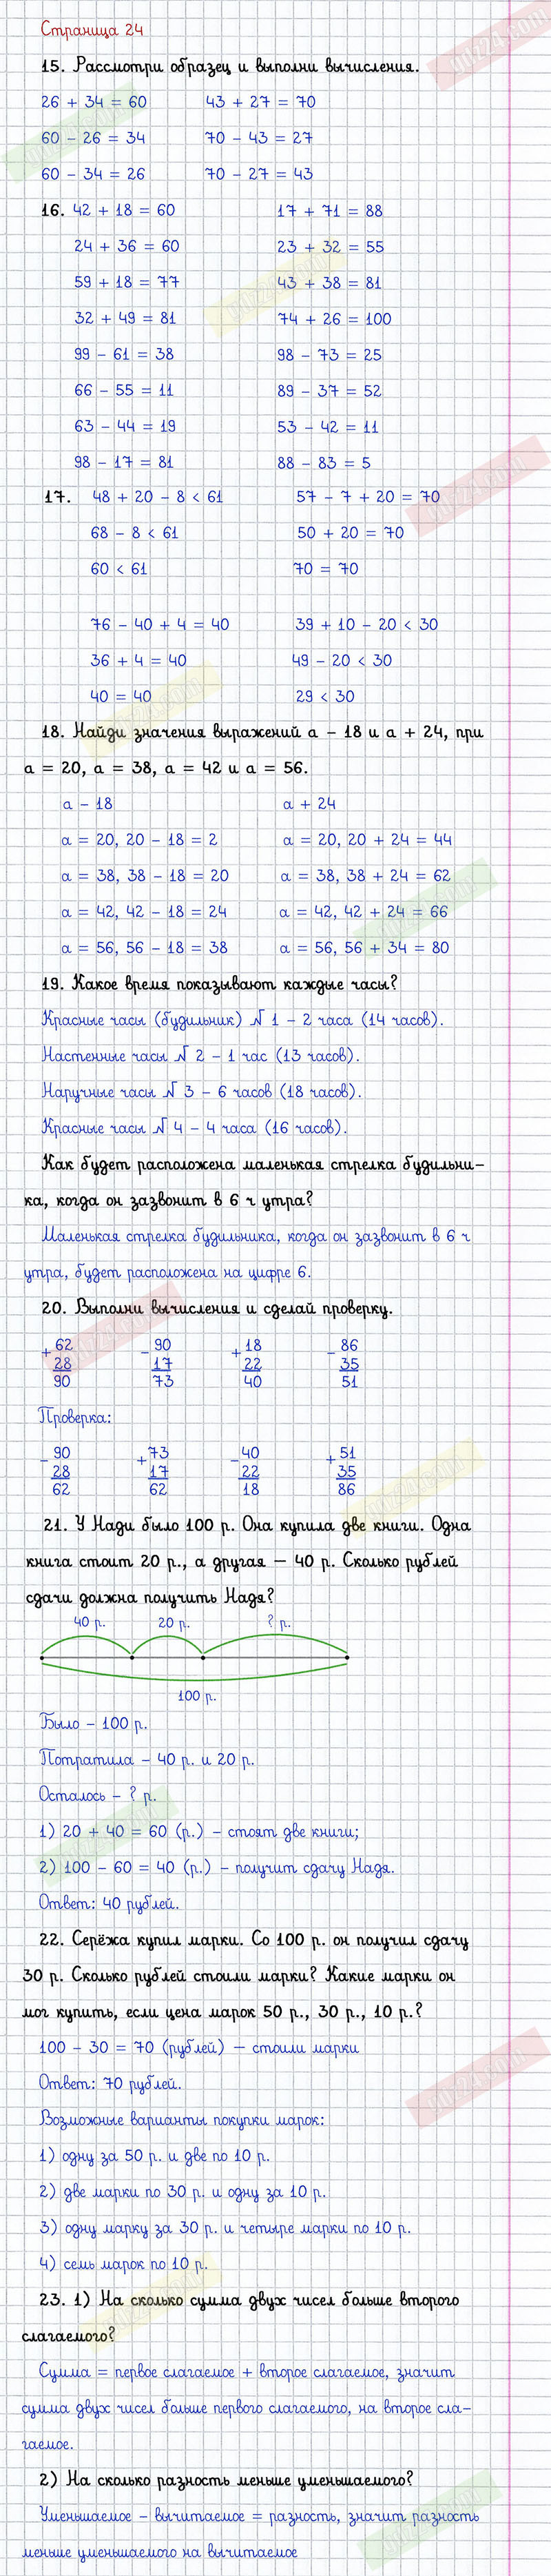 Страница 24
15. Рассмотри образец и выполни вычисления.
26 + 34 = 60 43 + 27 = 70
60 - 26 = 34 70 - 43 = 27
60 - 34 = 26 70 - 27 = 43
16. 42 + 18 = 60 17 + 71 = 88
24 + 36 = 60 23 + 32 = 55
59 + 18 = 77 43 + 38 = 81
32 + 49 = 81 74 + 26 = 100
99 - 61 = 38 98 - 73 = 25
66 - 55 = 11 89 - 37 = 52
63 - 44 = 19 53 - 42 = 11
98 - 17 = 81 88 - 83 = 5
17. 48 + 20 - 8 < 61 57 - 7 + 20 = 70
68 - 8 < 61 50 + 20 = 70
60 < 61 70 = 70
76 - 40 + 4 = 40 39 + 10 - 20 < 30
36 + 4 = 40 49 - 20 < 30
40 = 40 29 < 30
18. Найди значения выражений а - 18 и а + 24, при
а = 20, а = 38, а = 42 и а = 56.
а - 18 а + 24
а = 20, 20 - 18 = 2 а = 20, 20 + 24 = 44
а = 38, 38 - 18 = 20 а = 38, 38 + 24 = 62
а = 42, 42 - 18 = 24 а = 42, 42 + 24 = 66
а = 56, 56 - 18 = 38 а = 56, 56 + 34 = 80
19. Какое время показывают каждые часы?
Красные часы (будильник) № 1 - 2 часа (14 часов).
Настенные часы № 2 - 1 час (13 часов).
Наручные часы № 3 - 6 часов (18 часов).
Красные часы № 4 - 4 часа (16 часов).
Как будет расположена маленькая стрелка будильни-
ка, когда он зазвонит в 6 ч утра?
Маленькая стрелка будильника, когда он зазвонит в 6 ч
утра, будет расположена на цифре 6.
20. Выполни вычисления и сделай проверку.
+ 62 - 90 + 18 - 86
28 17 22 35
90 73 40 51
Проверка:
- 90 + 73 - 40 + 51
28 17 22 35
62 62 18 86
21. У Нади было 100 р. Она купила две книги. Одна
книга стоит 20 р., а другая — 40 р. Сколько рублей
сдачи должна получить Надя?
40 р. 20 р. ? р.
100 р.
Было - 100 р.
Потратила - 40 р. и 20 р.
Осталось - ? р.
1) 20 + 40 = 60 (р.) - стоят две книги;
2) 100 - 60 = 40 (р.) - получит сдачу Надя.
Ответ: 40 рублей.
22. Серёжа купил марки. Со 100 р. он получил сдачу
30 р. Сколько рублей стоили марки? Какие марки он
мог купить, если цена марок 50 р., 30 р., 10 р.?
100 - 30 = 70 (рублей) — стоили марки
Ответ: 70 рублей.
Возможные варианты покупки марок:
1) одну за 50 р. и две по 10 р.
2) две марки по 30 р. и одну за 10 р.
3) одну марку за 30 р. и четыре марки по 10 р.
4) семь марок по 10 р.
23. 1) На сколько сумма двух чисел больше второго
слагаемого?
Сумма = первое слагаемое + второе слагаемое, значит
сумма двух чисел больше первого слагаемого, на второе сла-
гаемое.
2) На сколько разность меньше уменьшаемого?
Уменьшаемое - вычитаемое = разность, значит разность
меньше уменьшаемого на вычитаемое